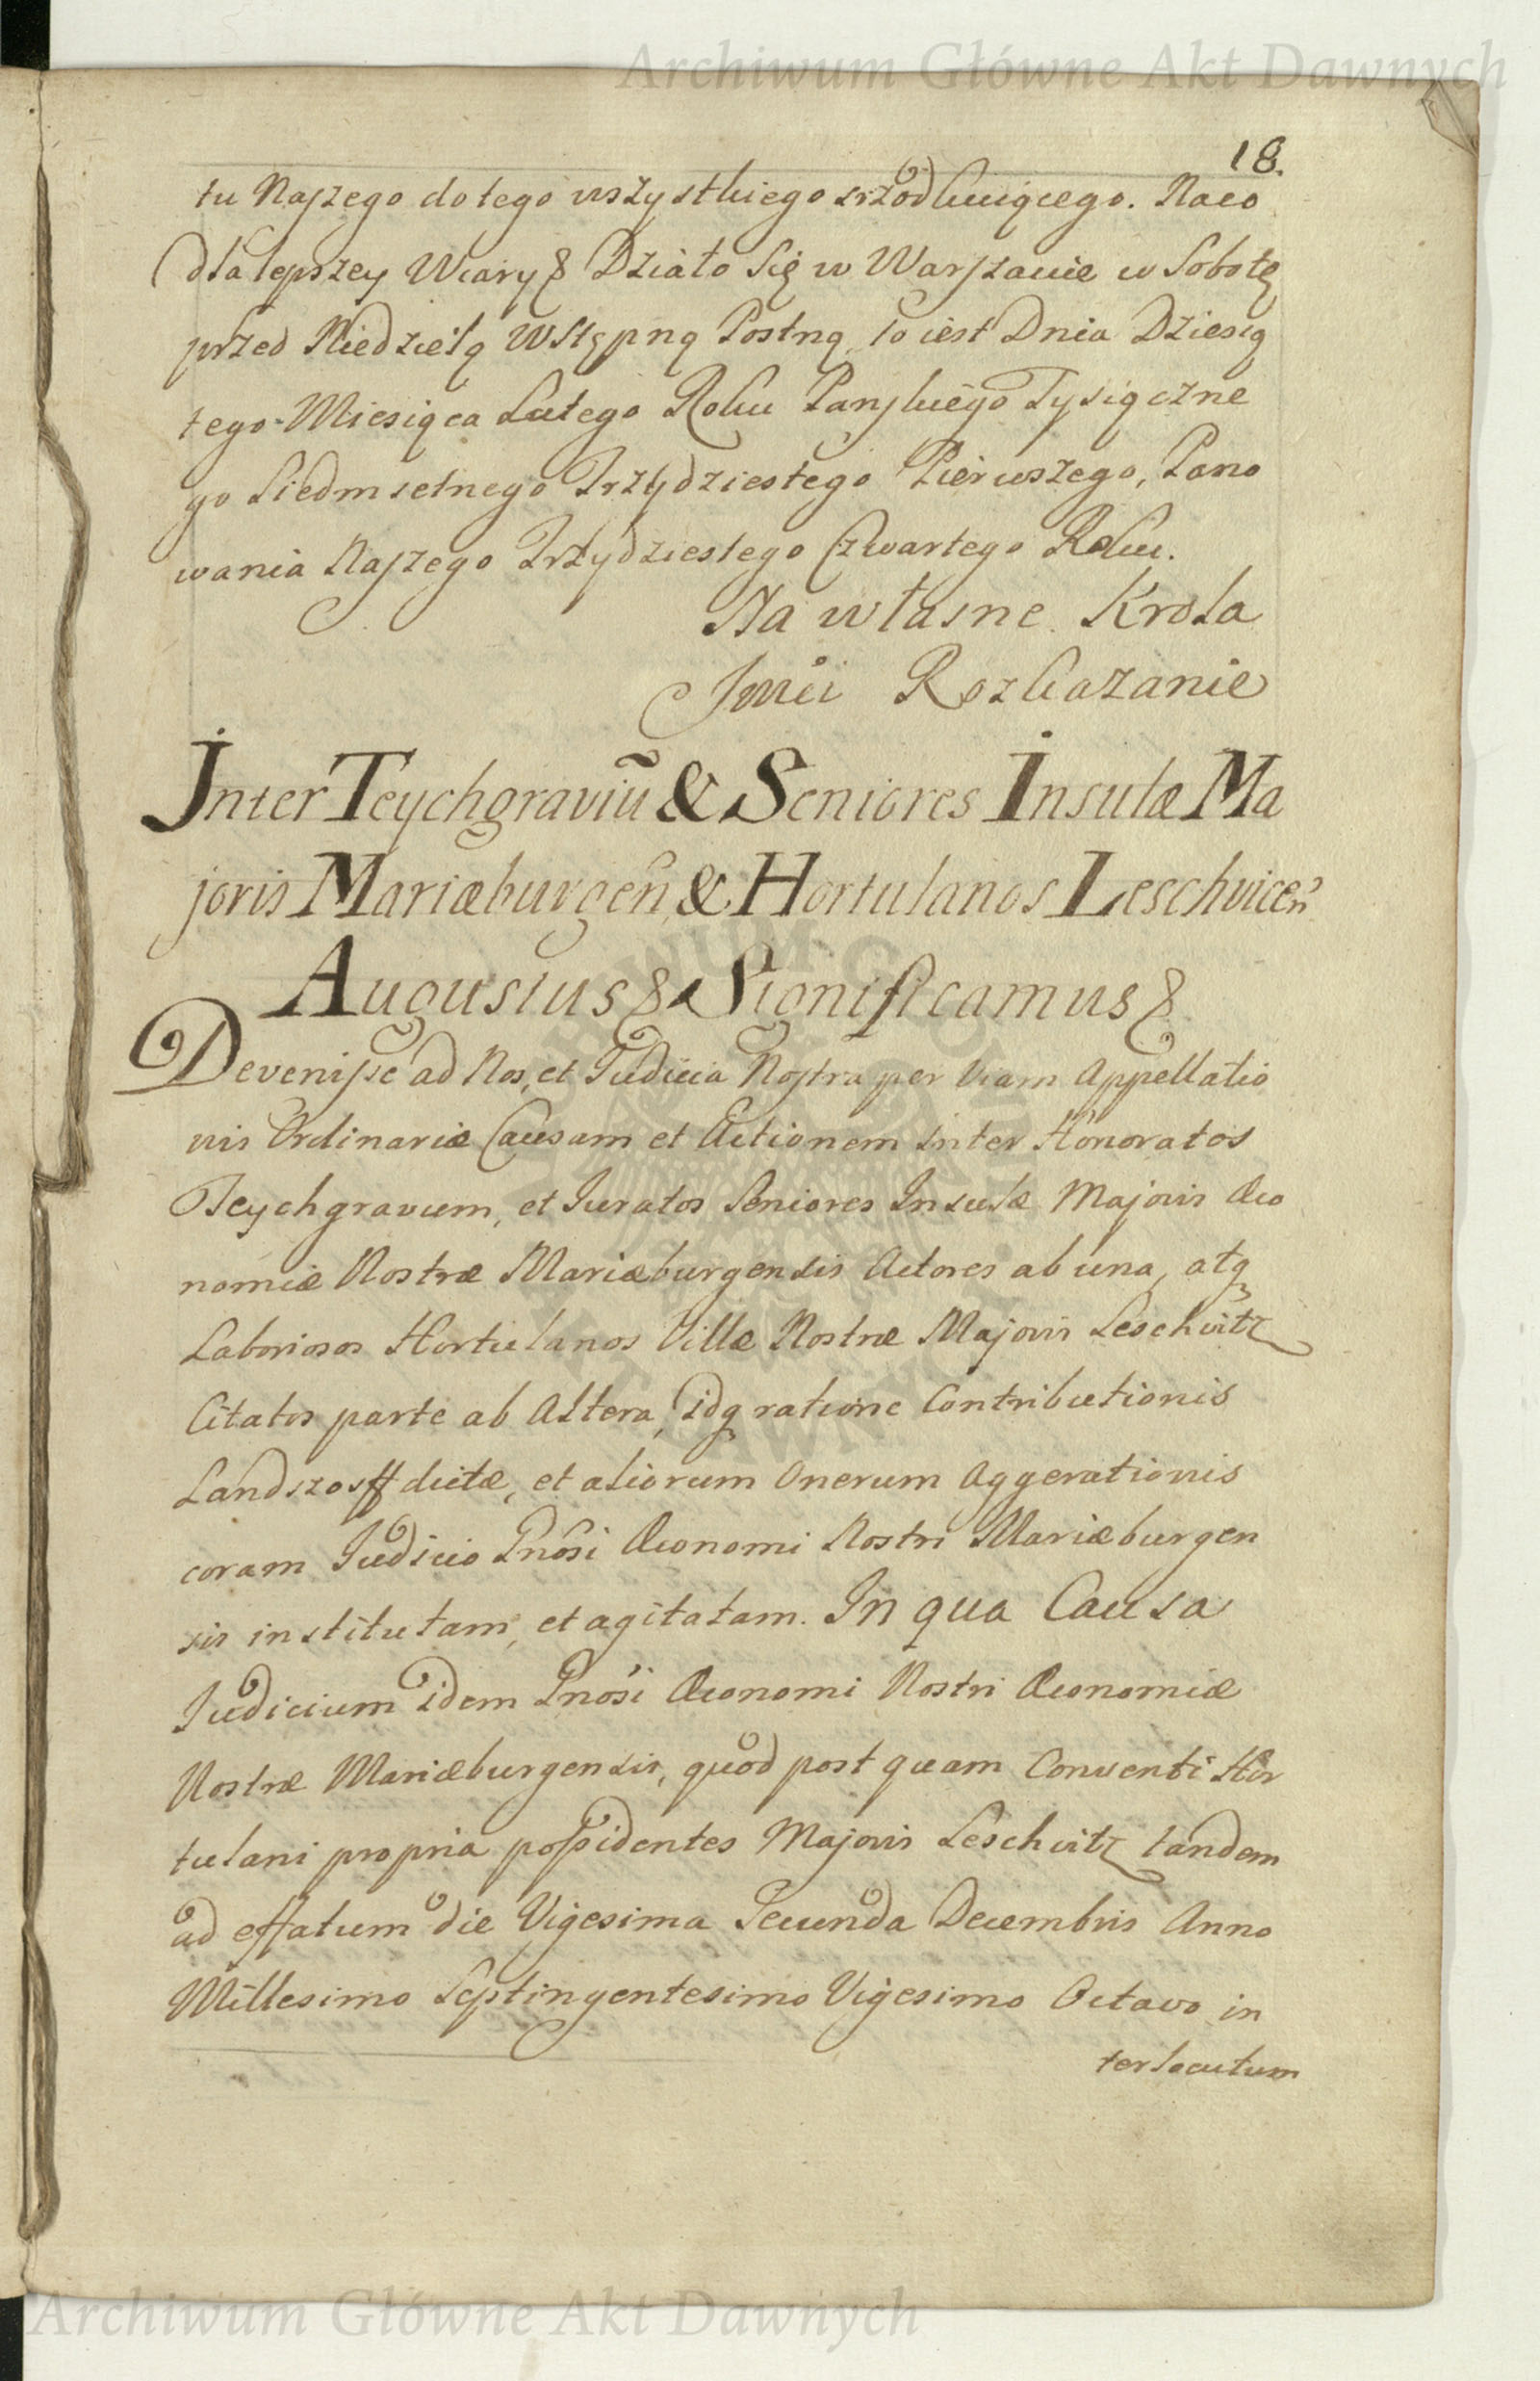 Archiwum Główne Akt Dawnych
18.
tu Naszego do tego wszystkiego srzodkuiącego. Naco
dla lepszey Wiary & Działo Się w Warszawie w Sobotę
przed Niedzielą Wstępną Postną, to iest Dnia Dziesią
tego Miesiąca Lutego Roku Panskiego Tysiączne
go Siedmsetnego Trzydziestego Pierwszego, Pano
wania Naszego Trzydziestego Czwartego Roku.
Na własne Krola
Jmći Rozkazanie
Jnter Teychgraviũ & Seniores Insulæ Ma
joris Mariæburgeñ, & Hortulanos Leschviceñ
Augustus & Significamus &
Devenisse ad Nos, et Judicia Nostra per Viam Appellatio
nis Ordinariæ Causam et Actionem inter Honoratos
Teychgravium, et Juratos Seniores Insulæ Majoris Œco
nomiæ Nostræ Mariæburgensis Actores ab una, atq
Laboriosos Hortulanos Villæ Nostræ Majoris Leschvitz
Citatos parte ab Altera, idq ratione Contributionis
Landszoss dictæ, et aliorum Onerum Aggerationis
coram Judicio Gnosi Œconomi Nostri Mariæburgen
sis institutam, et agitatam. In qua Causa
Judicium idem Gnosi Œconomi Nostri Œconomiæ
Nostræ Mariæburgensis, quod post quam Conventi Hor
tulani propria possidentes Majoris Leschvitz tandem
ad effatum die Vigesima Secunda Decembris Anno
Millesimo Septingentesimo Vigesimo Octavo in
terlocutum
Archiwum Główne Akt Dawnych